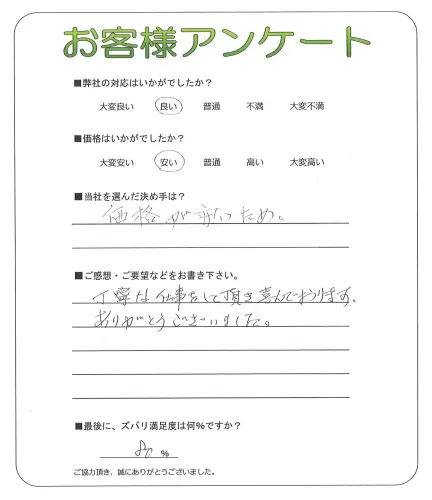 お客様アンケート
■弊社の対応はいかがでしたか？
大変良い 良い 普通 不満 大変不満
■価格はいかがでしたか？
大変安い 安い 普通 高い 大変高い
■当社を選んだ決め手は？
価格が安いため。
■ご感想・ご要望などをお書き下さい。
丁寧な仕事をして頂き喜んでおります。
ありがとうございました。
■最後に、ズバリ満足度は何%ですか？
80 %
ご協力頂き、誠にありがとうございました。